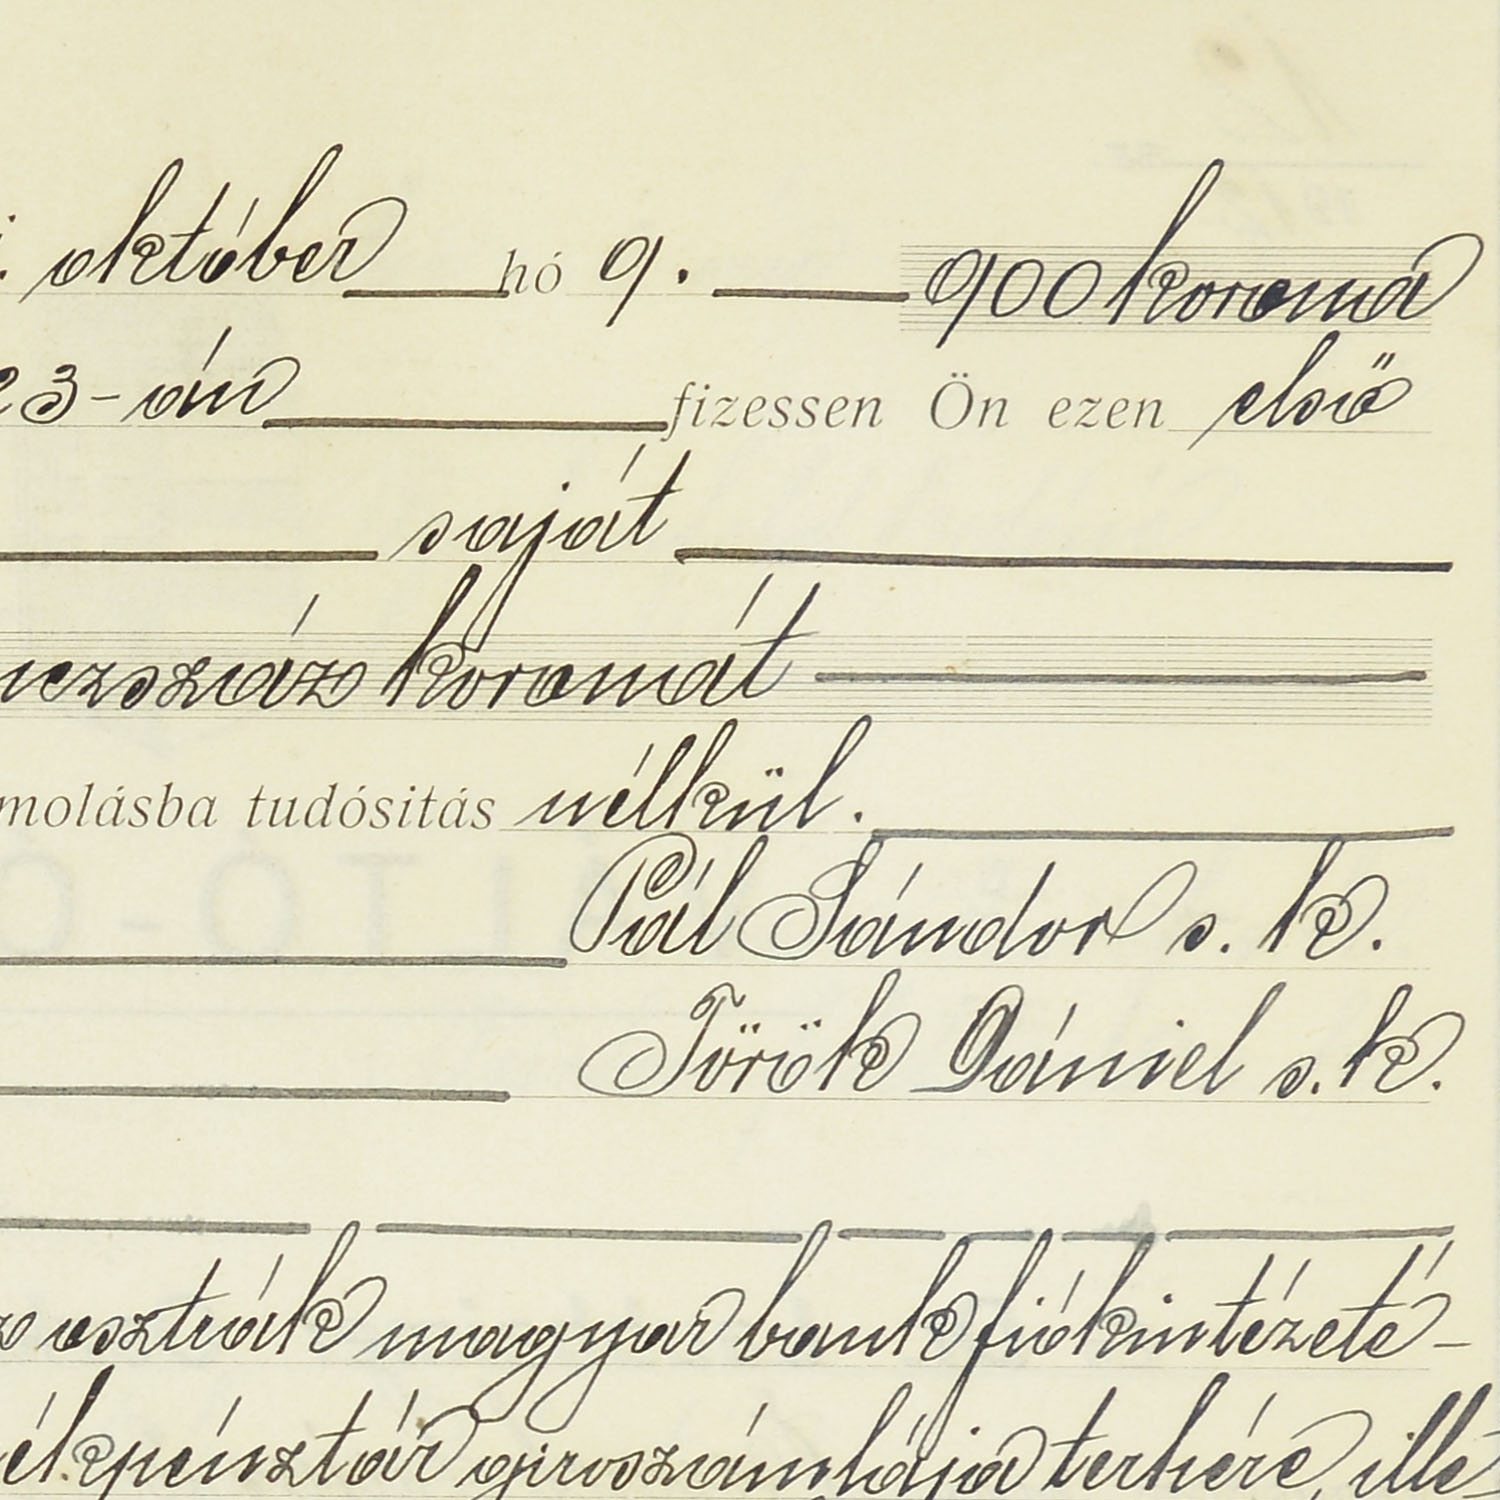 október hó 9. 900 korona
23-án fizessen Ön ezen első
saját
nezszáz koronát
molásba tudósitás nélkül.
Pál Sándor s. k.
Török Dániel s. k.
z osztrák magyar bank fiókintézeté-
élkpénztár giroszámlája terhére, ille-